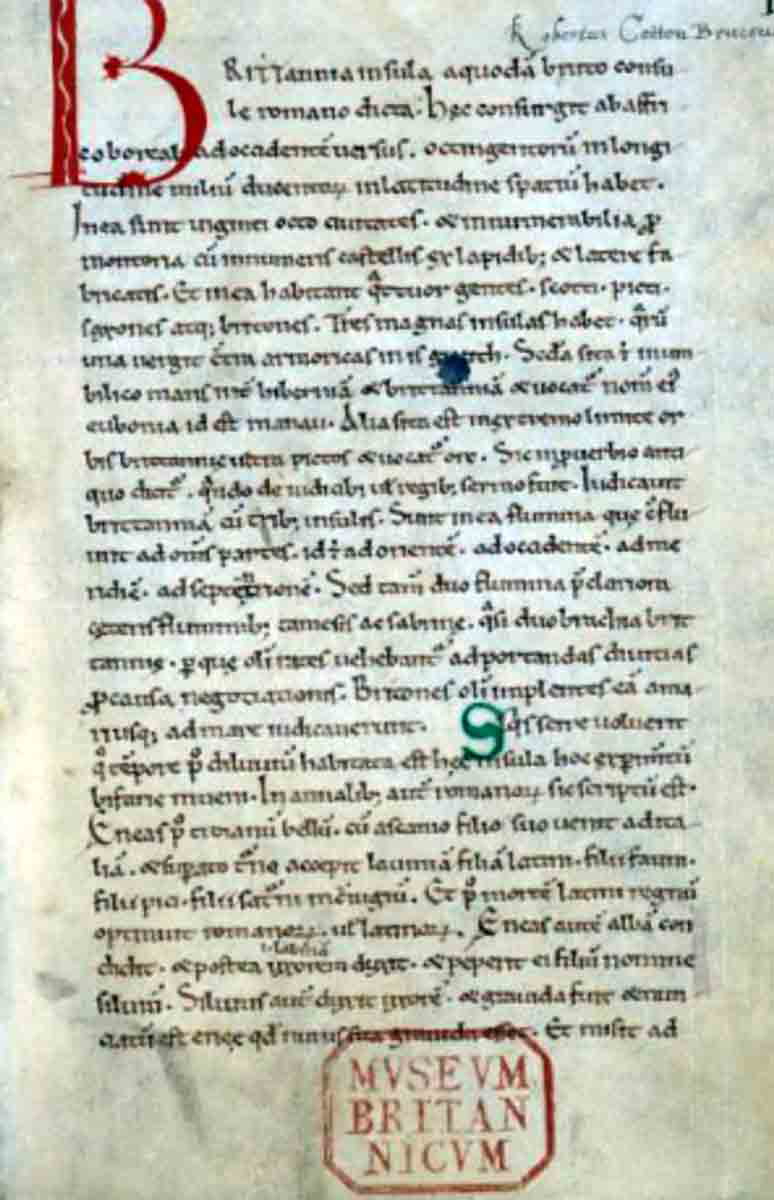 Robertus Cotton Bruceus
BRITTannia insula a quodā bruto consu
le romano dicta. hęc consurgit ab affri
co boreali ad occidentē uersus. octingentorū in longi
tudine miliū ducentoꝝ in latitudine spatiū habet.
In ea sunt uiginti octo ciuitates. & innumerabilia ꝓ
montoria cū innumeris castellis ex lapidib; & latere fa
bricatis. Et in ea habitant qͣttuor gentes. scotti. picti.
saxones atq; britones. Tres magnas insulas habet. qͣrū
una uergit cͭra armoricas
Scd̄a sita ē in um
bilico maris int̄ hiberniā & brittanniā & uocat᷑ nom̄ ei᷒
eubonia id est manau. Alia sita est in extremo limite or
bis brittannie ultra pictos & uocat᷑ orc. Sic in ꝓuerbio anti
quo dicit᷑. qͣndo de iudicib; ul̄ regib; sermo fuit. Iudicauit
brittanniā cū trib; insulis. Sunt in ea flumina que cōflu
unt ad om̄s partes. id ē ad orientē. ad occidentē. ad me
ridiē. ad septētrionē. Sed tam̄ duo flumina p̄clariora
ceteris fluminib; tamesis ac sabrine. qͣsi duo brachia brit
tannię. ꝑ que oli rates uehebant᷑ ad portandas diuitias
ꝓ causa negotiationis. Britones oli implentes eā a ma
ri usq; ad mare iudicauerunt. Siqͥs scire uoluerit
qͦ tēpore p̄ diluuiū habitata est hęc insula hoc exꝑimtū
bifarie inueni. In annalib; aut̄ romanoꝝ sic scriptū est.
Eneas p̄ troianū bellū. cū ascanio filio suo uenit ad ita
liā. & supato turno accepit lauiniā filiā latini. filii fauni.
filii pici. filii saturni in cōiugiū. Et p̄ mortē latini regnū
optinuit romanoꝝ. ul̄ latinoꝝ. Eneas autē albā con
didit. & postea uxorem duxit. & peperit ei filiū nomine
siluiū. Siluius aut̄ duxit uxorē. & grauida fuit & nun
ciatū est enęę qd̄ nurus sua grauida esset. Et misit ad
MVSEVM
BRITAN
NICVM